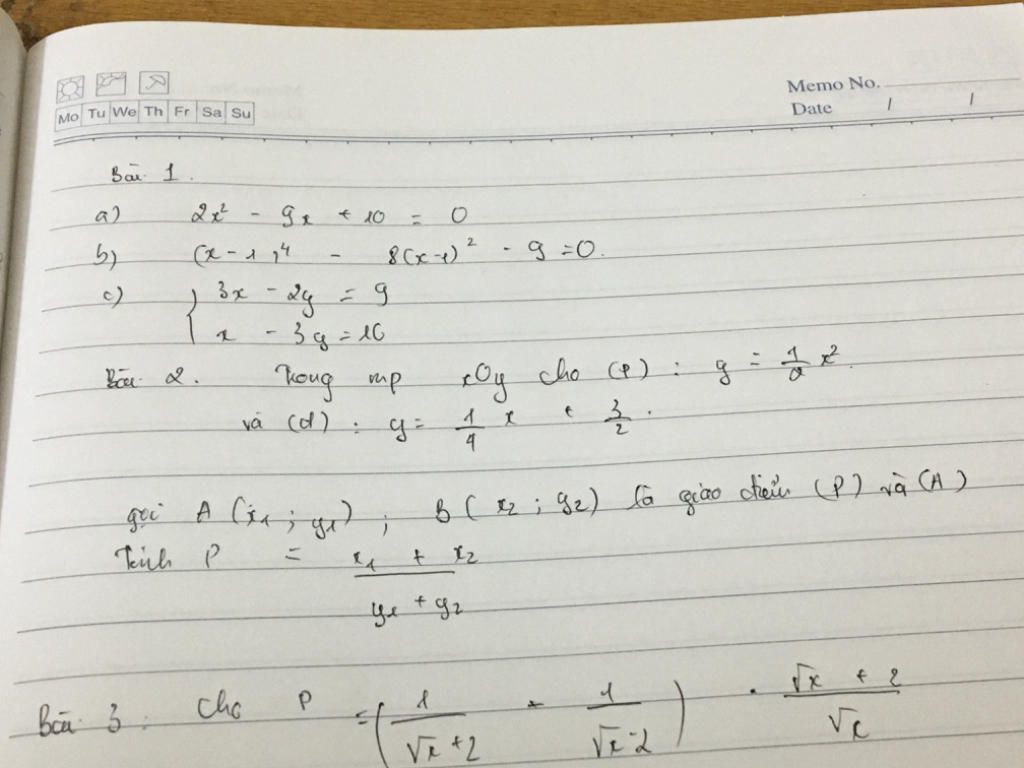 Memo No.
Mo Tu We Th Fr Sa Su
Date / /
Bài 1.
a) 2x² - 9x + 10 = 0
b) (x-1)⁴ - 8(x-1)² - 9 = 0.
c) { 3x - 2y = 9
x - 3y = 10
Bài 2. Trong mp xOy cho (P) : y = 1/2 x².
và (d) : y = 1/4 x + 3/2.
gọi A (x₁ ; y₁) ; B ( x₂ ; y₂) là giao điểm (P) và (A)
Tính P = (x₁ + x₂)/(y₁ + y₂)
Bài 3 : Cho P = (1/(√x + 2) + 1/(√x - 2)) . (√x + 2)/√x